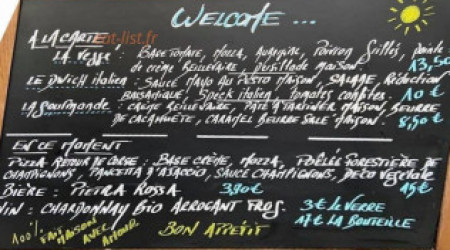 WELCOME ...
A LA CARTE
LA VEGGE : BASE TOMATE, MOZZA, AUBERGINE, POIVRON GRILLÉS, pointe
de crème BELLEVAIRE, persillade maison. 13,50
LE DWICH italien : SAUCE MAYO AU PESTO MAISON, SALADE, RÉDUCTION
BALSAMIQUE, Speck italien, tomates confites. 10€
LA GOURMANDE : CRÈME BELLEVAIRE, PÂTE À TARTINER MAISON, BEURRE
DE CACAHUÈTE, CARAMEL BEURRE SALÉ MAISON. 8,50€
EN CE MOMENT
PIZZA RETOUR DE CORSE : BASE CRÈME, MOZZA, POÊLÉE FORESTIÈRE DE
CHAMPIGNONS, PANCETTA D'AJACCIO, SAUCE CHAMPIGNONS, DÉCO VEGETALE 15€
BIÈRE : PIETRA ROSSA 3,90€
VIN : CHARDONNAY BIO ARROGANT FROG 3€ LE VERRE
17€ LA BOUTEILLE
100% FAIT MAISON AVEC AMOUR BON APPÉTIT